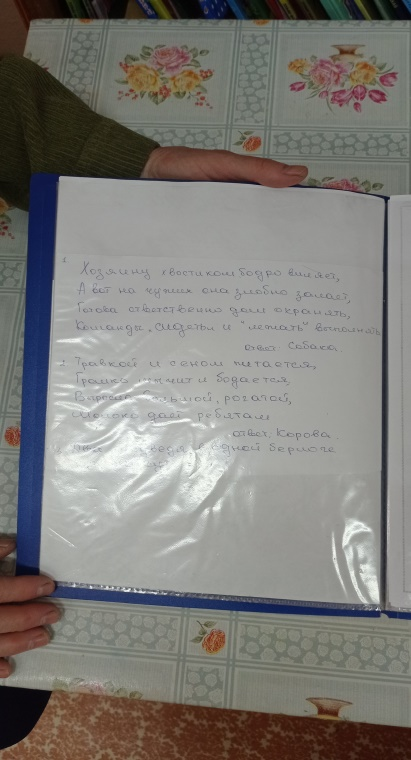 1.
Хозяину хвостиком бодро виляет,
А вот на чужих она злобно залает,
Готова ответственно дом охранять,
Команды "сидеть" и "лежать" выполнять
ответ: Собака
2. Травкой и сеном питается,
Громко мычит и бодается,
Вырос большой, рогатой,
Молоко даёт ребятам
ответ: Корова
3. одной берлоге